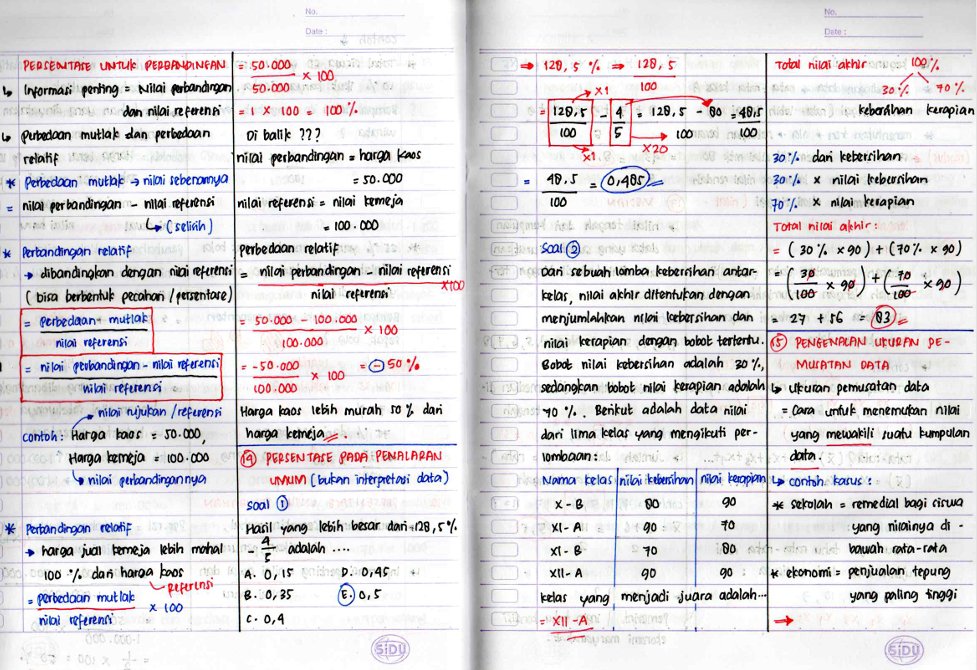 No.
Date :
PERSENTASE UNTUK PERBANDINGAN
↳ Informasi penting = Nilai perbandingan
dan nilai referensi
↳ Perbedaan mutlak dan perbedaan
relatif
* Perbedaan mutlak → nilai sebenarnya
= nilai perbandingan - nilai referensi
↳ (selisih)
* Perbandingan relatif
→ dibandingkan dengan nilai referensi
(bisa berbentuk pecahan / persentase)
= perbedaan mutlak
nilai referensi
= nilai perbandingan - nilai referensi
nilai referensi
→ nilai rujukan / referensi
contoh : Harga kaos = 50.000,
Harga kemeja = 100.000
↳ nilai perbandingannya
* Perbandingan relatif
→ harga jual kemeja lebih mahal
100 % dari harga kaos
↳ referensi
= perbedaan mutlak × 100
nilai referensi
= 50.000 × 100
50.000
= 1 × 100 = 100 %
Di balik ???
nilai perbandingan = harga kaos
= 50.000
nilai referensi = nilai kemeja
= 100.000
Perbedaan relatif
= nilai perbandingan - nilai referensi ×100
nilai referensi
= 50.000 - 100.000 × 100
100.000
= -50.000 × 100 = -50 %
100.000
Harga kaos lebih murah 50 % dari
harga kemeja
(14) PERSENTASE PADA PENALARAN
UMUM (bukan interpretasi data)
soal (1)
Hasil yang lebih besar dari 128,5%
- 4/5 adalah ....
A. 0,15 D. 0,45
B. 0,35 E. 0,5
C. 0,4
SIDU
No.
Date :
→ 128,5 % → 128,5
100
×1
= 128,5 - 4 = 128,5 - 80 = 48,5
100 5 100 100
×1 ×20
= 48,5 = 0,485
100
Soal (2)
Dari sebuah lomba kebersihan antar-
kelas, nilai akhir ditentukan dengan
menjumlahkan nilai kebersihan dan
nilai kerapian dengan bobot tertentu.
Bobot nilai kebersihan adalah 30%,
sedangkan bobot nilai kerapian adalah
70 %. Berikut adalah data nilai
dari lima kelas yang mengikuti per-
lombaan:
Nama kelas nilai kebersihan nilai kerapian
X - B 80 90
XI - A 90 70
XI - B 70 80
XII - A 90 90
kelas yang menjadi juara adalah...
= XII - A
Total nilai akhir 100%
30% 70%
kebersihan kerapian
30% dari kebersihan
30% × nilai kebersihan
70% × nilai kerapian
Total nilai akhir :
= (30% × 90) + (70% × 90)
= (30/100 × 90) + (70/100 × 90)
= 27 + 56 = 83
(15) PENGENALAN UKURAN PE-
MUSATAN DATA
↳ Ukuran pemusatan data
= Cara untuk menemukan nilai
yang mewakili suatu kumpulan
data.
↳ contoh kasus :
* sekolah = remedial bagi siswa
yang nilainya di-
bawah rata-rata
* ekonomi = penjualan tepung
yang paling tinggi
→
SIDU